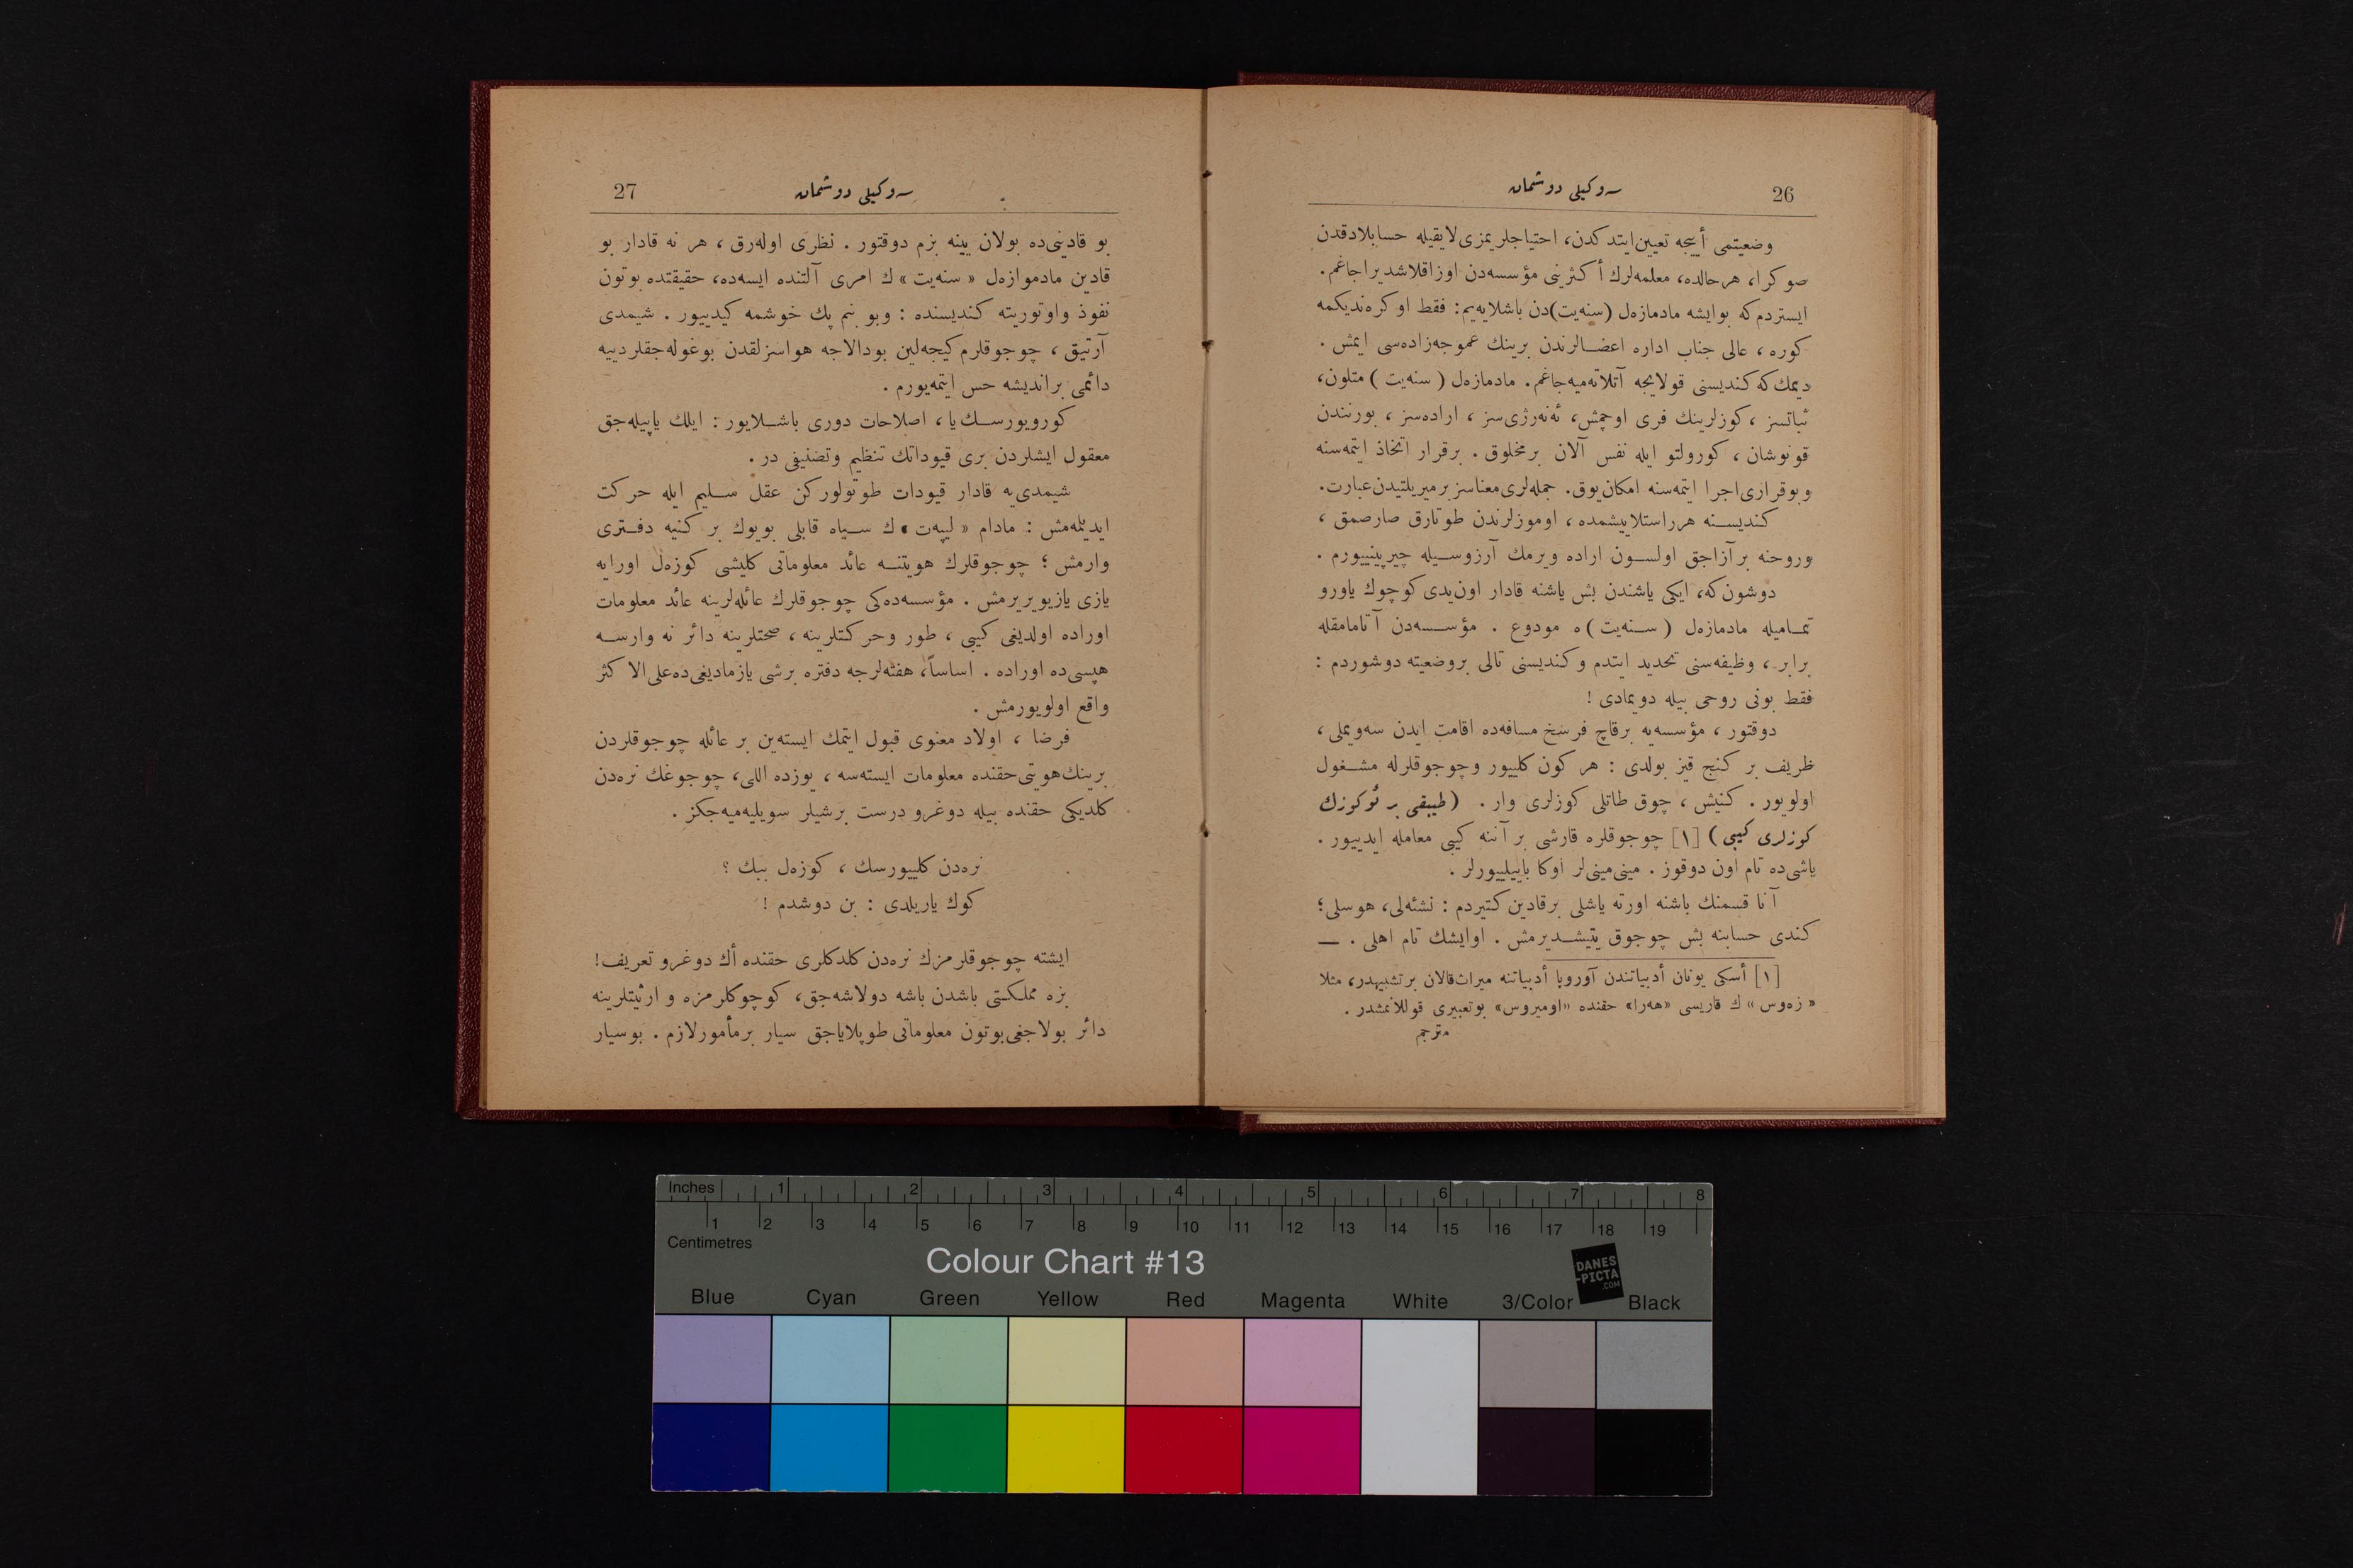 26
سه‌وكیلی دوشمان
وضعیتمی أییجه تعیین ایتدكدن، احتیاجلریمزی لایقیله حسابلادقدن
صوكرا، هر حالده، معلمه‌لرك أكثرینی مؤسسه‌دن اوزاقلاشدیراجاغم.
ایستردم كه بوایشه مادمازه‌ل (سنه‌یت)دن باشلایه‌یم: فقط اوكره‌ندیكمه
كوره ، عالی جناب اداره اعضالرندن برینك عموجه‌زاده‌سی ایمش .
دیمك كه كندیسنی قولایجه آتلاته‌میه‌جاغم. مادمازه‌ل (سنه‌یت) متلون،
ثباتسز ، كوزلرینك فری اوچمش، ئه‌نه‌رژی‌سز ، اراده‌سز ، بورنندن
قونوشان ، كورولتو ایله نفس آلان بر مخلوق . بر قرار اتخاذ ایتمه‌سنه
و بو قراری اجرا ایتمه‌سنه امكان یوق. جمله‌لری معناسز بر میریلتیدن عبارت.
كندیسنه هر راستلاییشمده ، اوموزلرندن طوتارق صارصمق ،
وروحنه بر آزاجق اولسون اراده ویرمك آرزوسیله چیرپینییورم .
دوشون كه، ایكی یاشندن بش یاشنه قادار اون‌یدی كوچوك یاورو
تمامیله مادمازه‌ل (سنه‌یت)ه مودوع . مؤسسه‌دن آتامامقله
برابر ، وظیفه‌سنی تحدید ایتدم وكندیسنی تالی بر وضعیته دوشوردم :
فقط بونی روحی بیله دویمادی !
دوقتور ، مؤسسه‌یه برقاچ فرسخ مسافه‌ده اقامت ایدن سه‌ویملی ،
ظریف بر كنج قیز بولدی : هر كون كلییور وچوجوقلرله مشغول
اولویور . كنیش ، چوق طاتلی كوزلری وار . (طبیقی بر ئوكوزك
كوزلری كیبی) [١] چوجوقلره قارشی بر آننه كیبی معامله ایدییور .
یاشی‌ده تام اون دوقوز . مینی‌مینی‌لر اوكا باییلییورلر .
آنا قسمنك باشنه اورته یاشلی برقادین كتیردم : نشئه‌لی، هوسلی؛
كندی حسابنه بش چوجوق یتیشدیرمش . اوایشك تام اهلی . —
[١] أسكی یونان أدبیاتندن آوروپا أدبیاتنه میراث‌قالان برتشبیهدر، مثلا
« زه‌وس » ك قاریسی «هه‌را» حقنده «اومیروس» بوتعبیری قوللانمشدر .
مترجم
27
سه‌وكیلی دوشمان
بو قادینی‌ده بولان ینه بزم دوقتور . نظری اوله‌رق ، هر نه قادار بو
قادین مادموازه‌ل « سنه‌یت » ك امری آلتنده ایسه‌ده، حقیقتده بوتون
نفوذ واوتوریته كندیسنده : وبو بنم پك خوشمه كیدییور . شیمدی
آرتیق ، چوجوقلرم كیجه‌لین بودالاجه هواسزلقدن بوغوله‌جقلردییه
دائمی براندیشه حس ایتمه‌یورم .
كورویورسك‌یا ، اصلاحات دوری باشلایور : ایلك یاپیله‌جق
معقول ایشلردن بری قیوداتك تنظیم وتصنیفی در .
شیمدی‌یه قادار قیودات طوتولوركن عقل سلیم ایله حركت
ایدیلمه‌مش : مادام « لیپه‌ت » ك سیاه قابلی بویوك بر كنیه دفتری
وارمش ؛ چوجوقلرك هویتنه عائد معلوماتی كلیشی كوزه‌ل اورایه
یازی یازیویریرمش . مؤسسه‌ده‌كی چوجوقلرك عائله‌لرینه عائد معلومات
اوراده اولدیغی كیبی ، طور وحركتلرینه ، صحتلرینه دائر نه وارسه
هپسی‌ده اوراده . اساساً، هفته‌لرجه دفتره برشی یازمادیغی‌ده علی‌الاكثر
واقع اولویورمش .
فرضا ، اولاد معنوی قبول ایتمك ایسته‌ین بر عائله چوجوقلردن
برینك هویتی حقنده معلومات ایسته‌سه ، یوزده اللی، چوجوغك نره‌دن
كلدیكی حقنده بیله دوغرو درست برشیلر سویلیه‌میه‌جكز .
نره‌دن كلییورسك ، كوزه‌ل ببك ؟
كوك یاریلدی : بن دوشدم !
ایشته چوجوقلرمزك نره‌دن كلدكلری حقنده أك دوغرو تعریف!
بزه مملكتی باشدن باشه دولاشه‌جق، كوچوكلرمزه و ارثیتلرینه
دائر بولاجغی بوتون معلوماتی طوپلایاجق سیار برمأمور لازم . بوسیار
Inches 1 2 3 4 5 6 7 8
1 2 3 4 5 6 7 8 9 10 11 12 13 14 15 16 17 18 19
Centimetres
Colour Chart #13
DANES
-PICTA
.COM
Blue Cyan Green Yellow Red Magenta White 3/Color Black